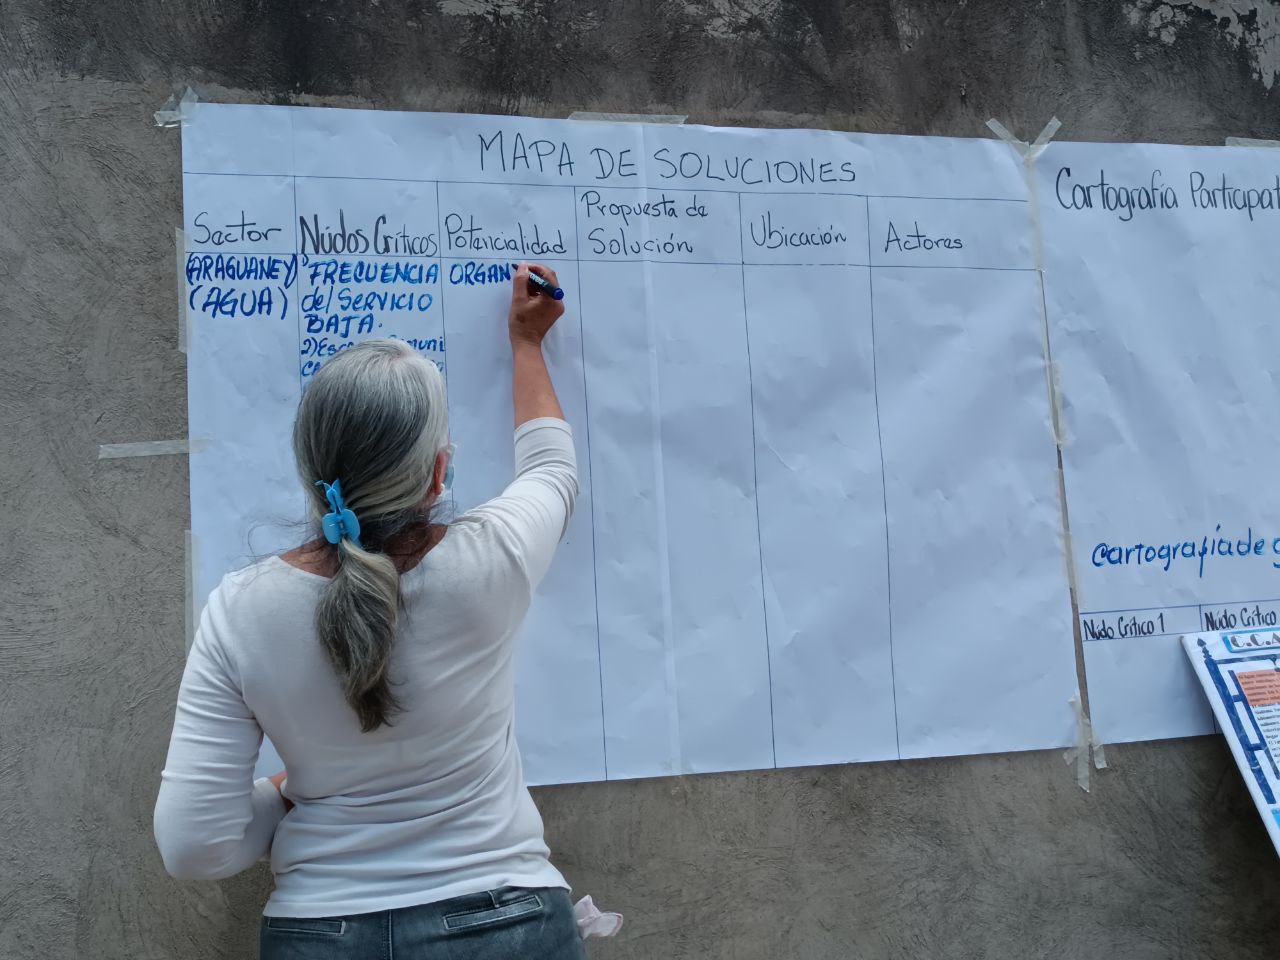 MAPA DE SOLUCIONES
Sector
Núdos Críticos
Potencialidad
Propuesta de
Solución
Ubicación
Actores
(ARAGUANEY)
(AGUA)
FRECUENCIA
del SERVICIO
BAJA.
2)
ORGAN
Cartografía
cartografía de
Núdo Crítico 1
Núdo Crítico
C.C.